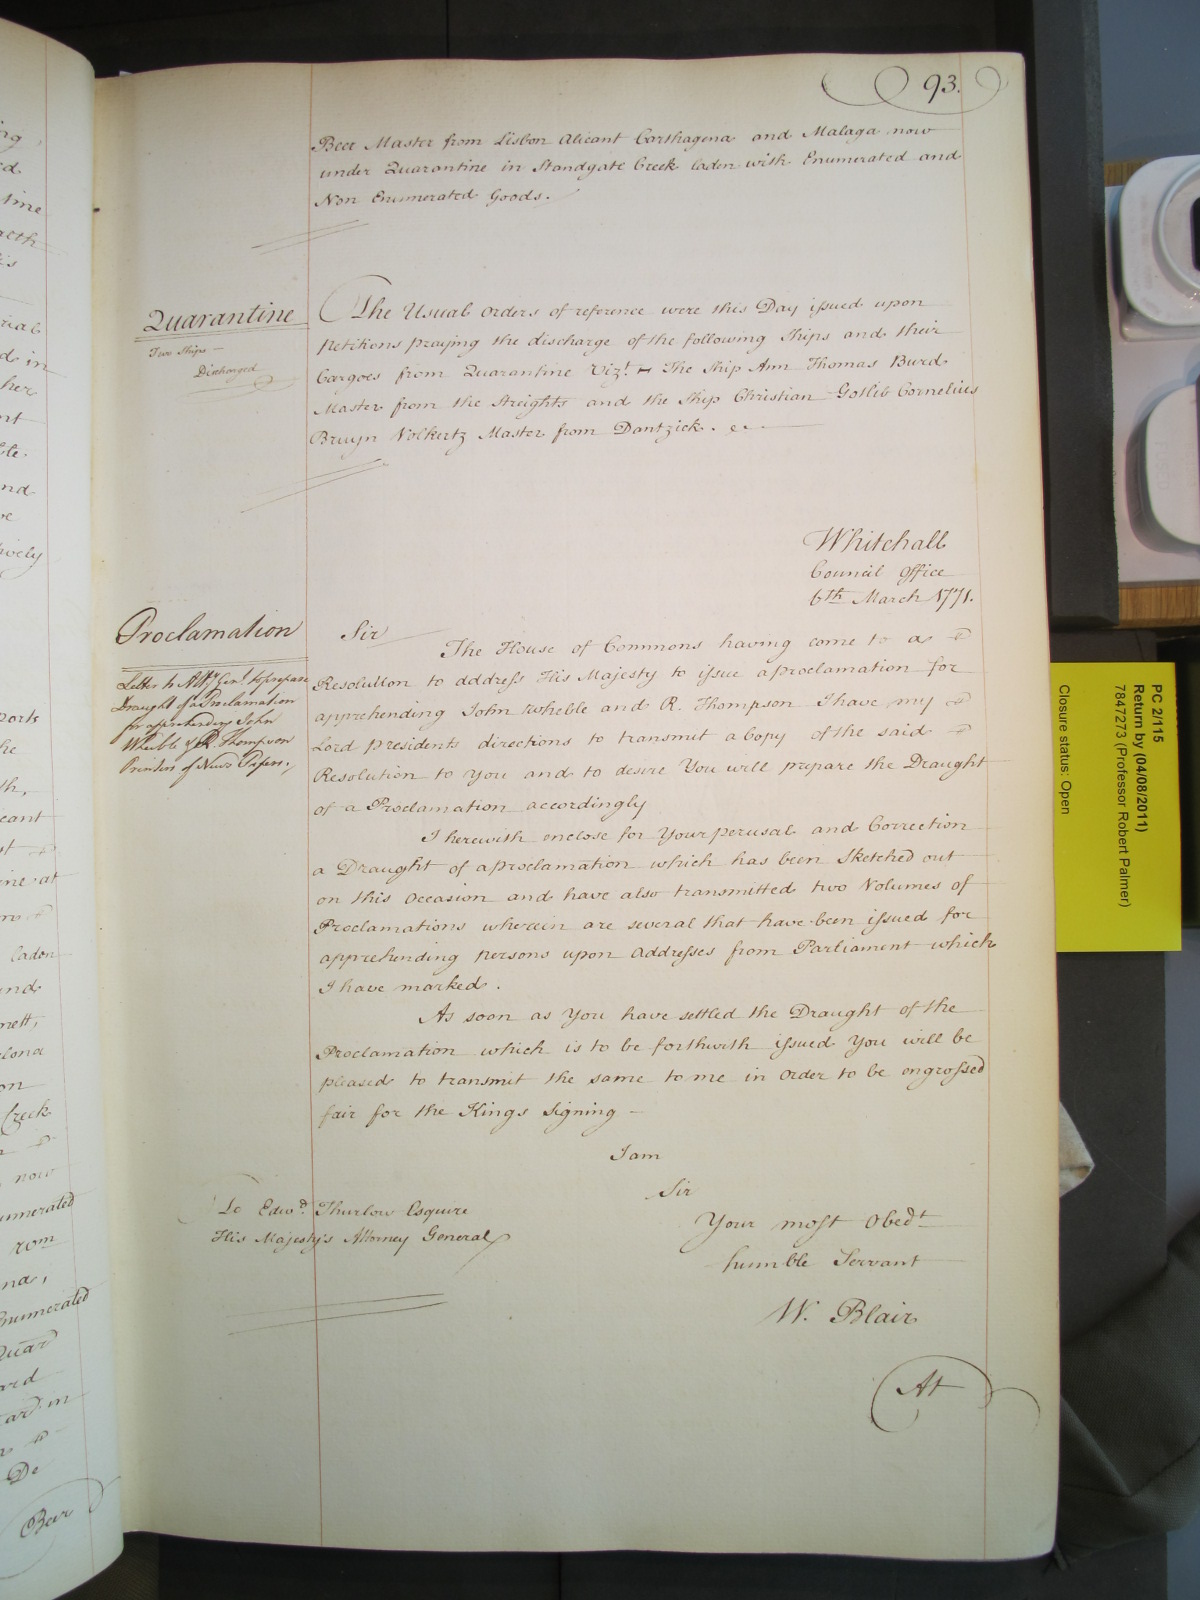 93.
Beer Master from Lisbon Alicant Carthagena and Malaga now
under Quarantine in Standgate Creek laden with Enumerated and
Non Enumerated Goods.
Quarantine
Two Ships
Discharged
The Usual orders of reference were this Day issued upon
Petitions praying the discharge of the following Ships and their
Cargoes from Quarantine Vizt. The Ship Ann Thomas Burd
Master from the Streights and the Ship Christian Gotlib Cornelius
Bruyn Volkertz Master from Dantzick.
Whitehall
Council Office
6th March 1771.
Proclamation
Letter to Atty. Genl. to prepare
Draught of a Proclamation
for apprehending John
Wheble & R. Thompson
Printers of News Papers.
Sir
The House of Commons having come to a
Resolution to address His Majesty to issue a proclamation for
apprehending John Wheble and R. Thompson I have my
Lord Presidents directions to transmit a Copy of the said
Resolution to You and to desire You will prepare the Draught
of a Proclamation accordingly
I herewith enclose for Your perusal and Correction
a Draught of a proclamation which has been Sketched out
on this Occasion and have also transmitted two Volumes of
Proclamations wherein are several that have been issued for
apprehending persons upon Addresses from Parliament which
I have marked.
As soon as You have settled the Draught of the
Proclamation which is to be forthwith issued You will be
pleased to transmit the same to me in Order to be engrossed
fair for the Kings Signing
I am
Sir
Your most Obedt
humble Servant
W. Blair
To Edwd. Thurlow Esquire
His Majesty's Attorney General
At
PC 2/115
Return by (04/08/2011)
7847273 (Professor Robert Palmer)
Closure status: Open
laden
Creek
now
Enumerated
De
Beer